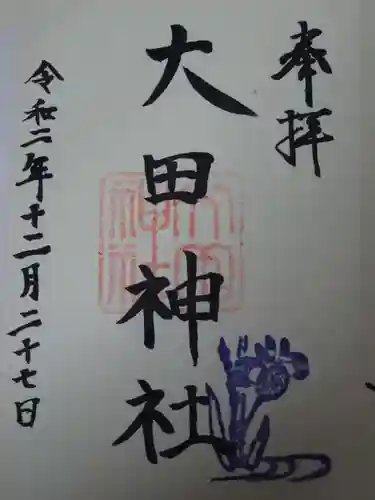 奉拝
大田神社
大田神社
令和二年十二月二十七日